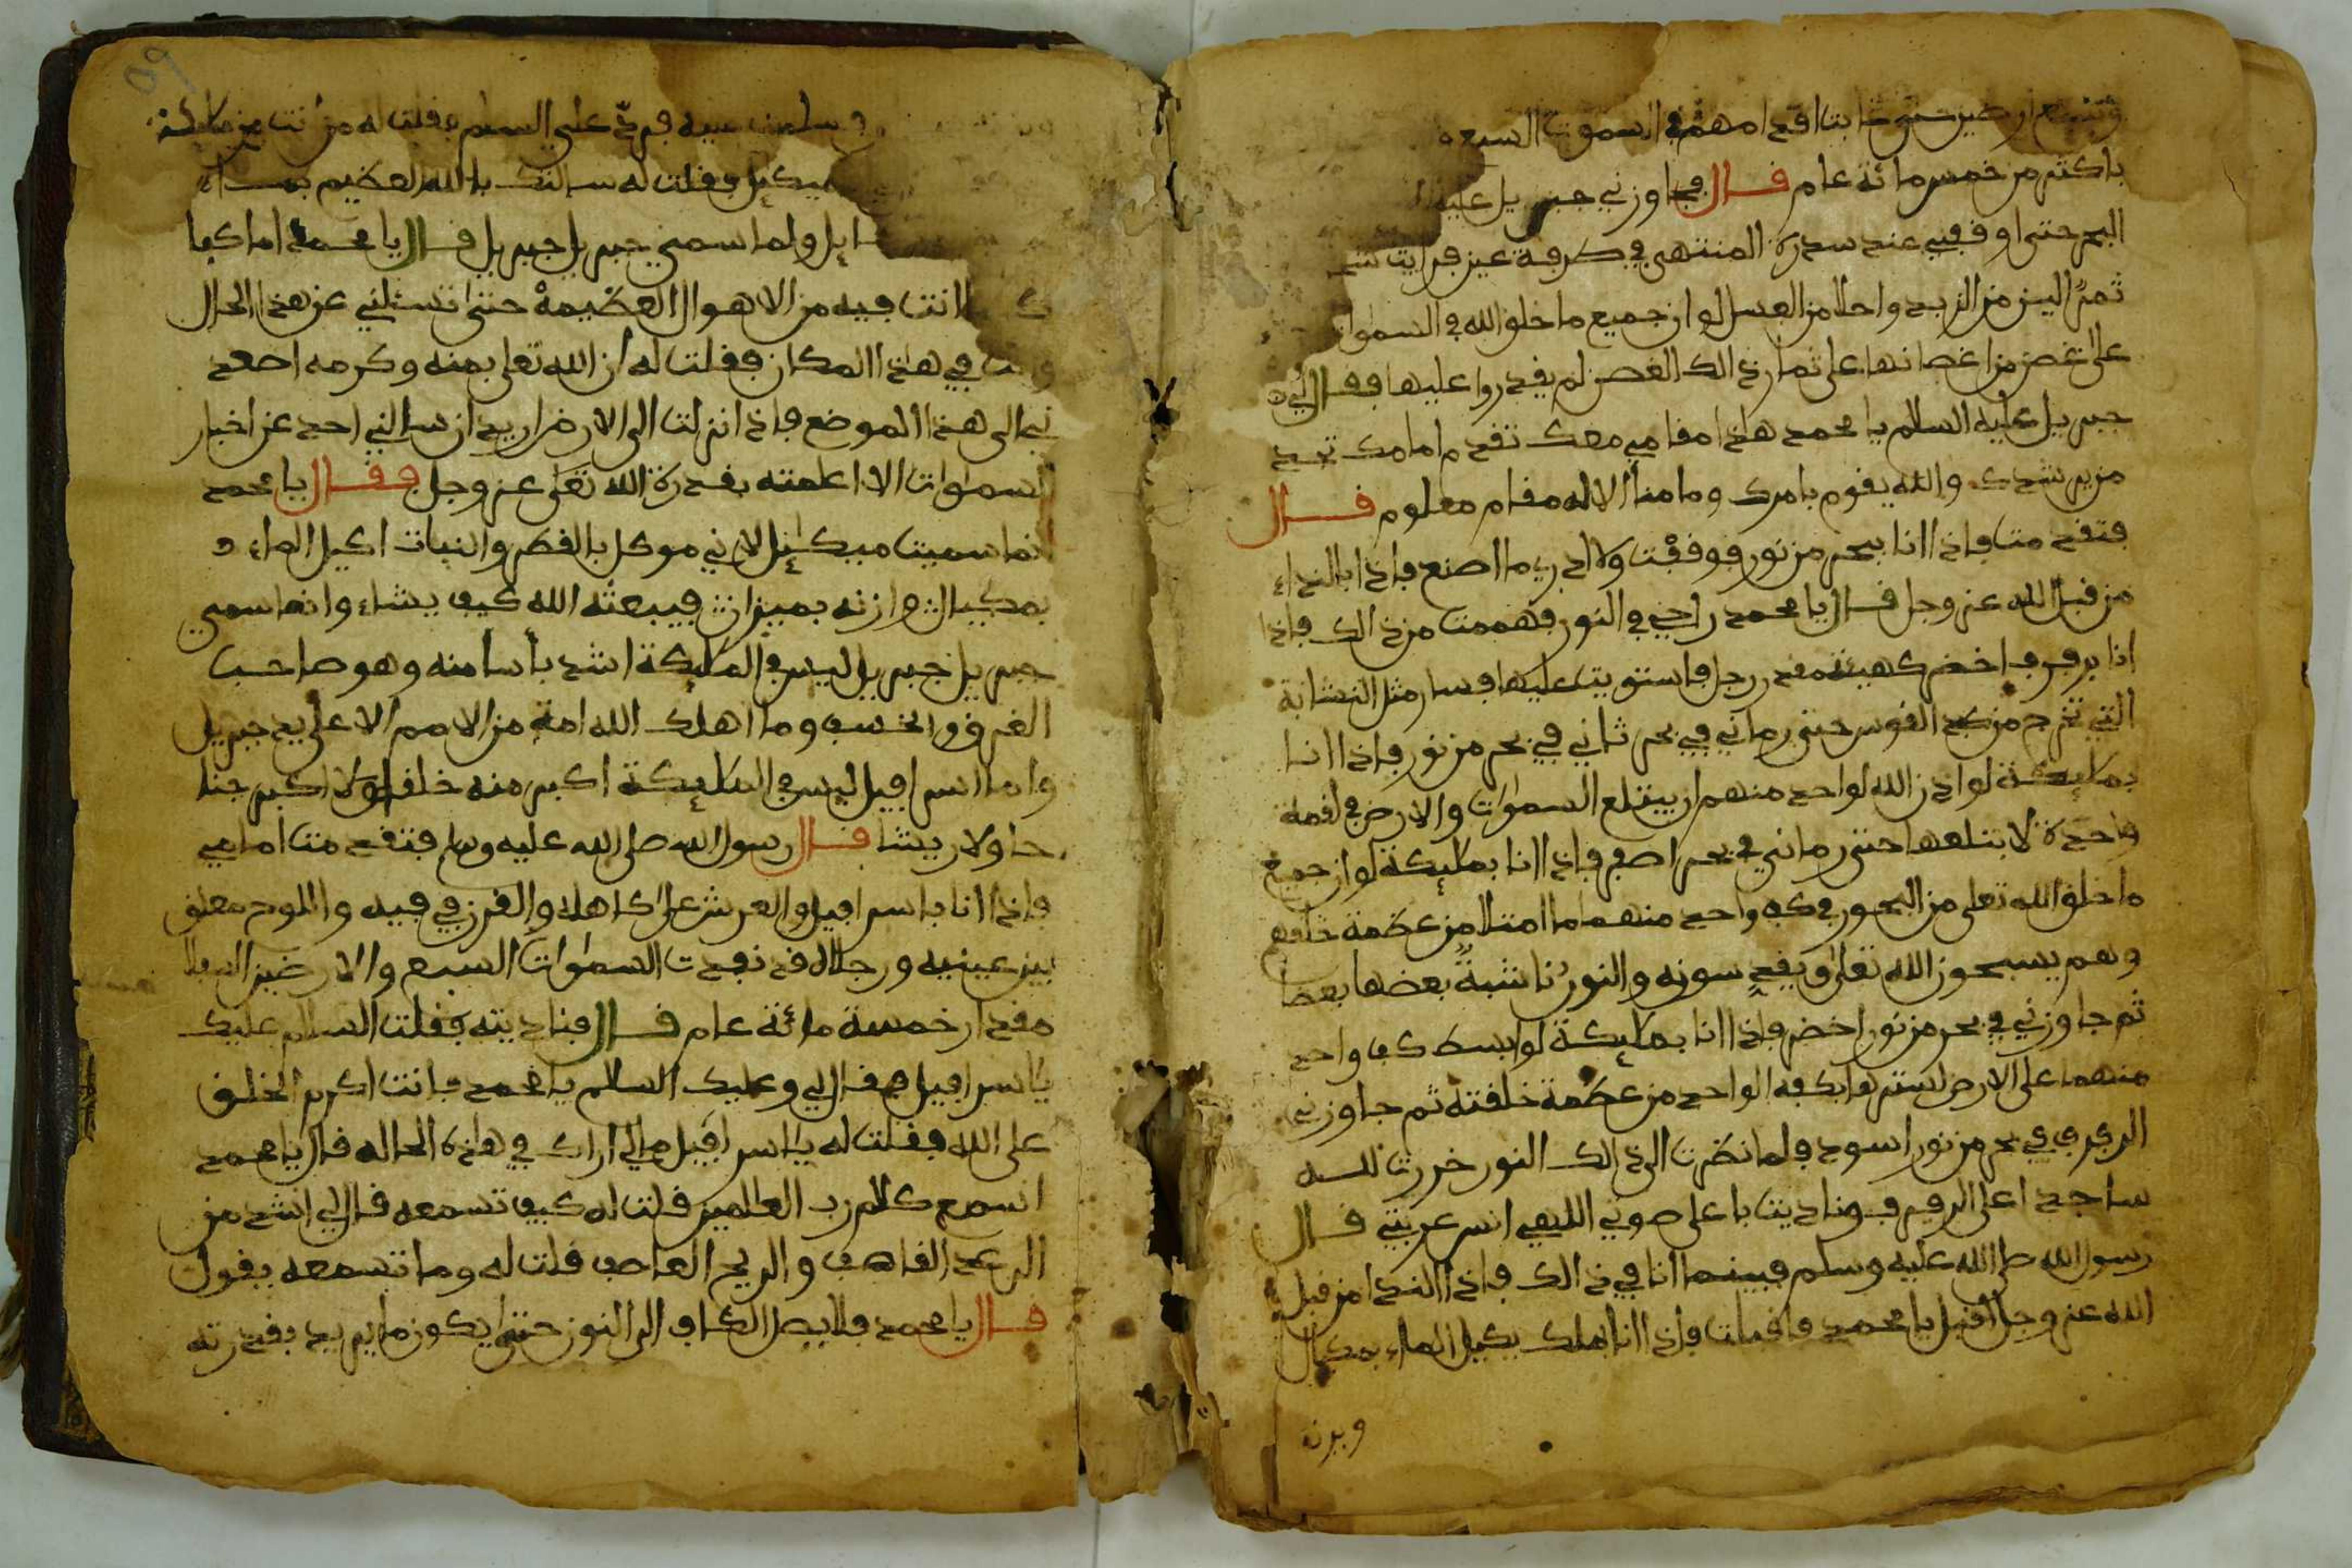 اقدامهم في السموات السبعه
باكثر من خمس مائة عام قال فجاوزني جبريل عليه
البحر حتى اوقفني عند سدرة المنتهى في طرفة عين فرايت
ثمر الين من الزبد واحلا من العسل لو ان جميع ما خلق الله في السموات
على غصن من اغصانها على ثمار ذالك الغصن لم يقدروا عليها فقال لي
جبريل عليه السلام يا محمد هاذا مقامي معك تقدم امامك تجد
من يرشدك والله يقوم بامرك وما منا الا له مقام معلوم قال
فتقدمت فاذا انا ببحر من نور فوقفت ولا ادري ما اصنع فاذا بالنداء
من قبل الله عز وجل قال يا محمد زاحي في النور فهممت من ذالك فاذا
انا برفرف اخضر كهيئة مقدر رجل فاستويت عليها فسار مثل النشابة
التي تخرج من كبد القوس حتى رماني في بحر ثاني في بحر من نور فاذا انا
بملايكة لو اذن الله لواحد منهم ان يبتلع السموات والارض في لقمة
واحدة لابتلعها حتى رماني في بحر اصفر فاذا انا بملايكة لو ان جميع
ما خلق الله تعلى من البحور في كف واحد منهم ما امتلا من عظمة خلقهم
وهم يسبحون الله تعلى ويقدسونه والنور ناشبة بعضها بعضا
ثم جاوزني في بحر من نور اخضر فاذا انا بملايكة لو ابسط كف واحد
منهما على الارض لسترها بكفه الواحد من عظمة خلقته ثم جاوزني
الرفرف في بحر من نور اسود فلما نظرت الى ذالك النور خررت لله
ساجدا على الرفرف وناديت باعلى صوتي اللهم انس غربتي قال
رسول الله صلى الله عليه وسلم فبينما انا في ذالك فاذا النداء من قبل
الله عز وجل اقبل يا محمد فاقبلت فاذا انا بملك يكيل الماء بمكيال
ويزنه
فرد علي السلم فقلت له من انت من ملايكة
ميكيل فقلت له سالتك بالله العظيم بم
ولما سمي جبريل جبريل قال يا محمد اما كفا
ما انت فيه من الاهوال العظيمة حتى تسئلني عن هذا الحال
وانت في هذا المكان فقلت له ان الله تعلى بمنه وكرمه اصعد
ني الى هذا الموضع فاذا نزلت الى الارض اريد ان سالني احد عن اخبار
السموات الا اعلمته بقدرة الله تعلى عز وجل فقال يا محمد
انما سميت ميكايل لاني موكل بالقطر والنبات اكيل الماء
بمكيال وازنه بميزان فيبعثه الله كيف يشاء وانما سمي
جبريل جبريل ليس في الملايكة اشد بأسا منه وهو صاحب
الغرق والخسف وما اهلك الله امة من الامم الا على يد جبريل
واما اسرافيل ليس في الملايكة اكبر منه خلقا ولا اكبر جنا
حا ولا ريشا قال رسول الله صلى الله عليه وسلم فتقدمت امامي
فاذا انا باسرافيل والعرش على كاهله والقرن في فيه واللوح معلق
بين عينيه ورجلاه قد نفدت السموات السبع والارضين السفلا
مقدار خمسة مائة عام قال فناديته فقلت السلام عليك
يا اسرافيل فقال لي وعليك السلام يا محمد فانت اكرم الخلق
على الله فقلت له يا اسرافيل مالي اراك في هاذه الحاله قال يا محمد
اسمع كلام رب العالمين قلت له كيف تسمعه قال لي اشد من
الرعد القاصف والريح العاصف قلت له وما تسمعه يقول
قال يا محمد فلا يصل الكاف الى النون حتى يكون ما يريد بقدرته